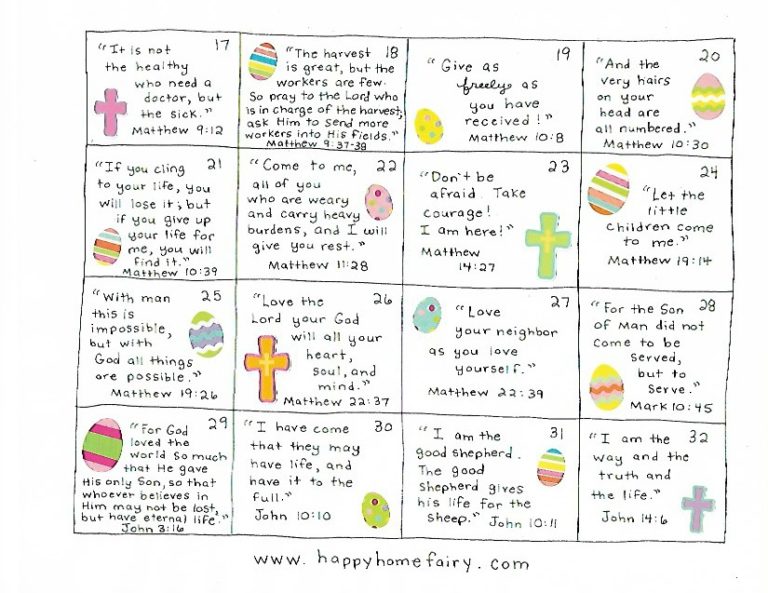 17
"It is not
the healthy
who need a
doctor, but
the sick."
Matthew 9:12
18
"The harvest
is great, but the
workers are few.
So pray to the Lord who
is in charge of the harvest,
ask Him to send more
workers into His fields."
Matthew 9:37-38
19
"Give as
freely as
you have
received!"
Matthew 10:8
20
"And the
very hairs
on your
head are
all numbered."
Matthew 10:30
21
"If you cling
to your life, you
will lose it; but
if you give up
your life for
me, you will
find it."
Matthew 10:39
22
"Come to me,
all of you
who are weary
and carry heavy
burdens, and I will
give you rest."
Matthew 11:28
23
"Don't be
afraid. Take
courage!
I am here!"
Matthew
14:27
24
"Let the
little
children come
to me."
Matthew 19:14
25
"With man
this is
impossible,
but with
God all things
are possible."
Matthew 19:26
26
"Love the
Lord your God
will all your
heart,
soul, and
mind."
Matthew 22:37
27
"Love
your neighbor
as you love
yourself."
Matthew 22:39
28
"For the Son
of Man did not
come to be
served,
but to
serve."
Mark 10:45
29
"For God
loved the
world so much
that He gave
His only Son, so that
whoever believes in
Him may not be lost,
but have eternal life."
John 3:16
30
"I have come
that they may
have life, and
have it to the
full."
John 10:10
31
"I am the
good shepherd.
The good
Shepherd gives
his life for the
sheep." John 10:11
32
"I am the
way and the
truth and
the life."
John 14:6
www.happyhomefairy.com